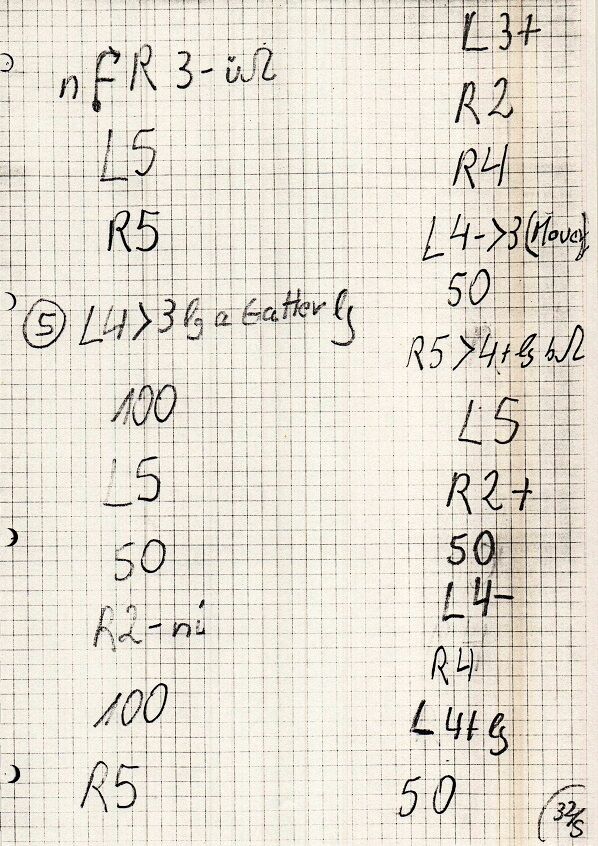 n R 3-üΩ
L5
R5
⑤ L4>3 lg a Gatter lg
100
L5
50
R2-ni
100
R5
L3+
R2
R4
L4->3(Move)
50
R5>4+lg bΩ
L5
R2+
50
L4-
R4
L4+lg
50
(32/S